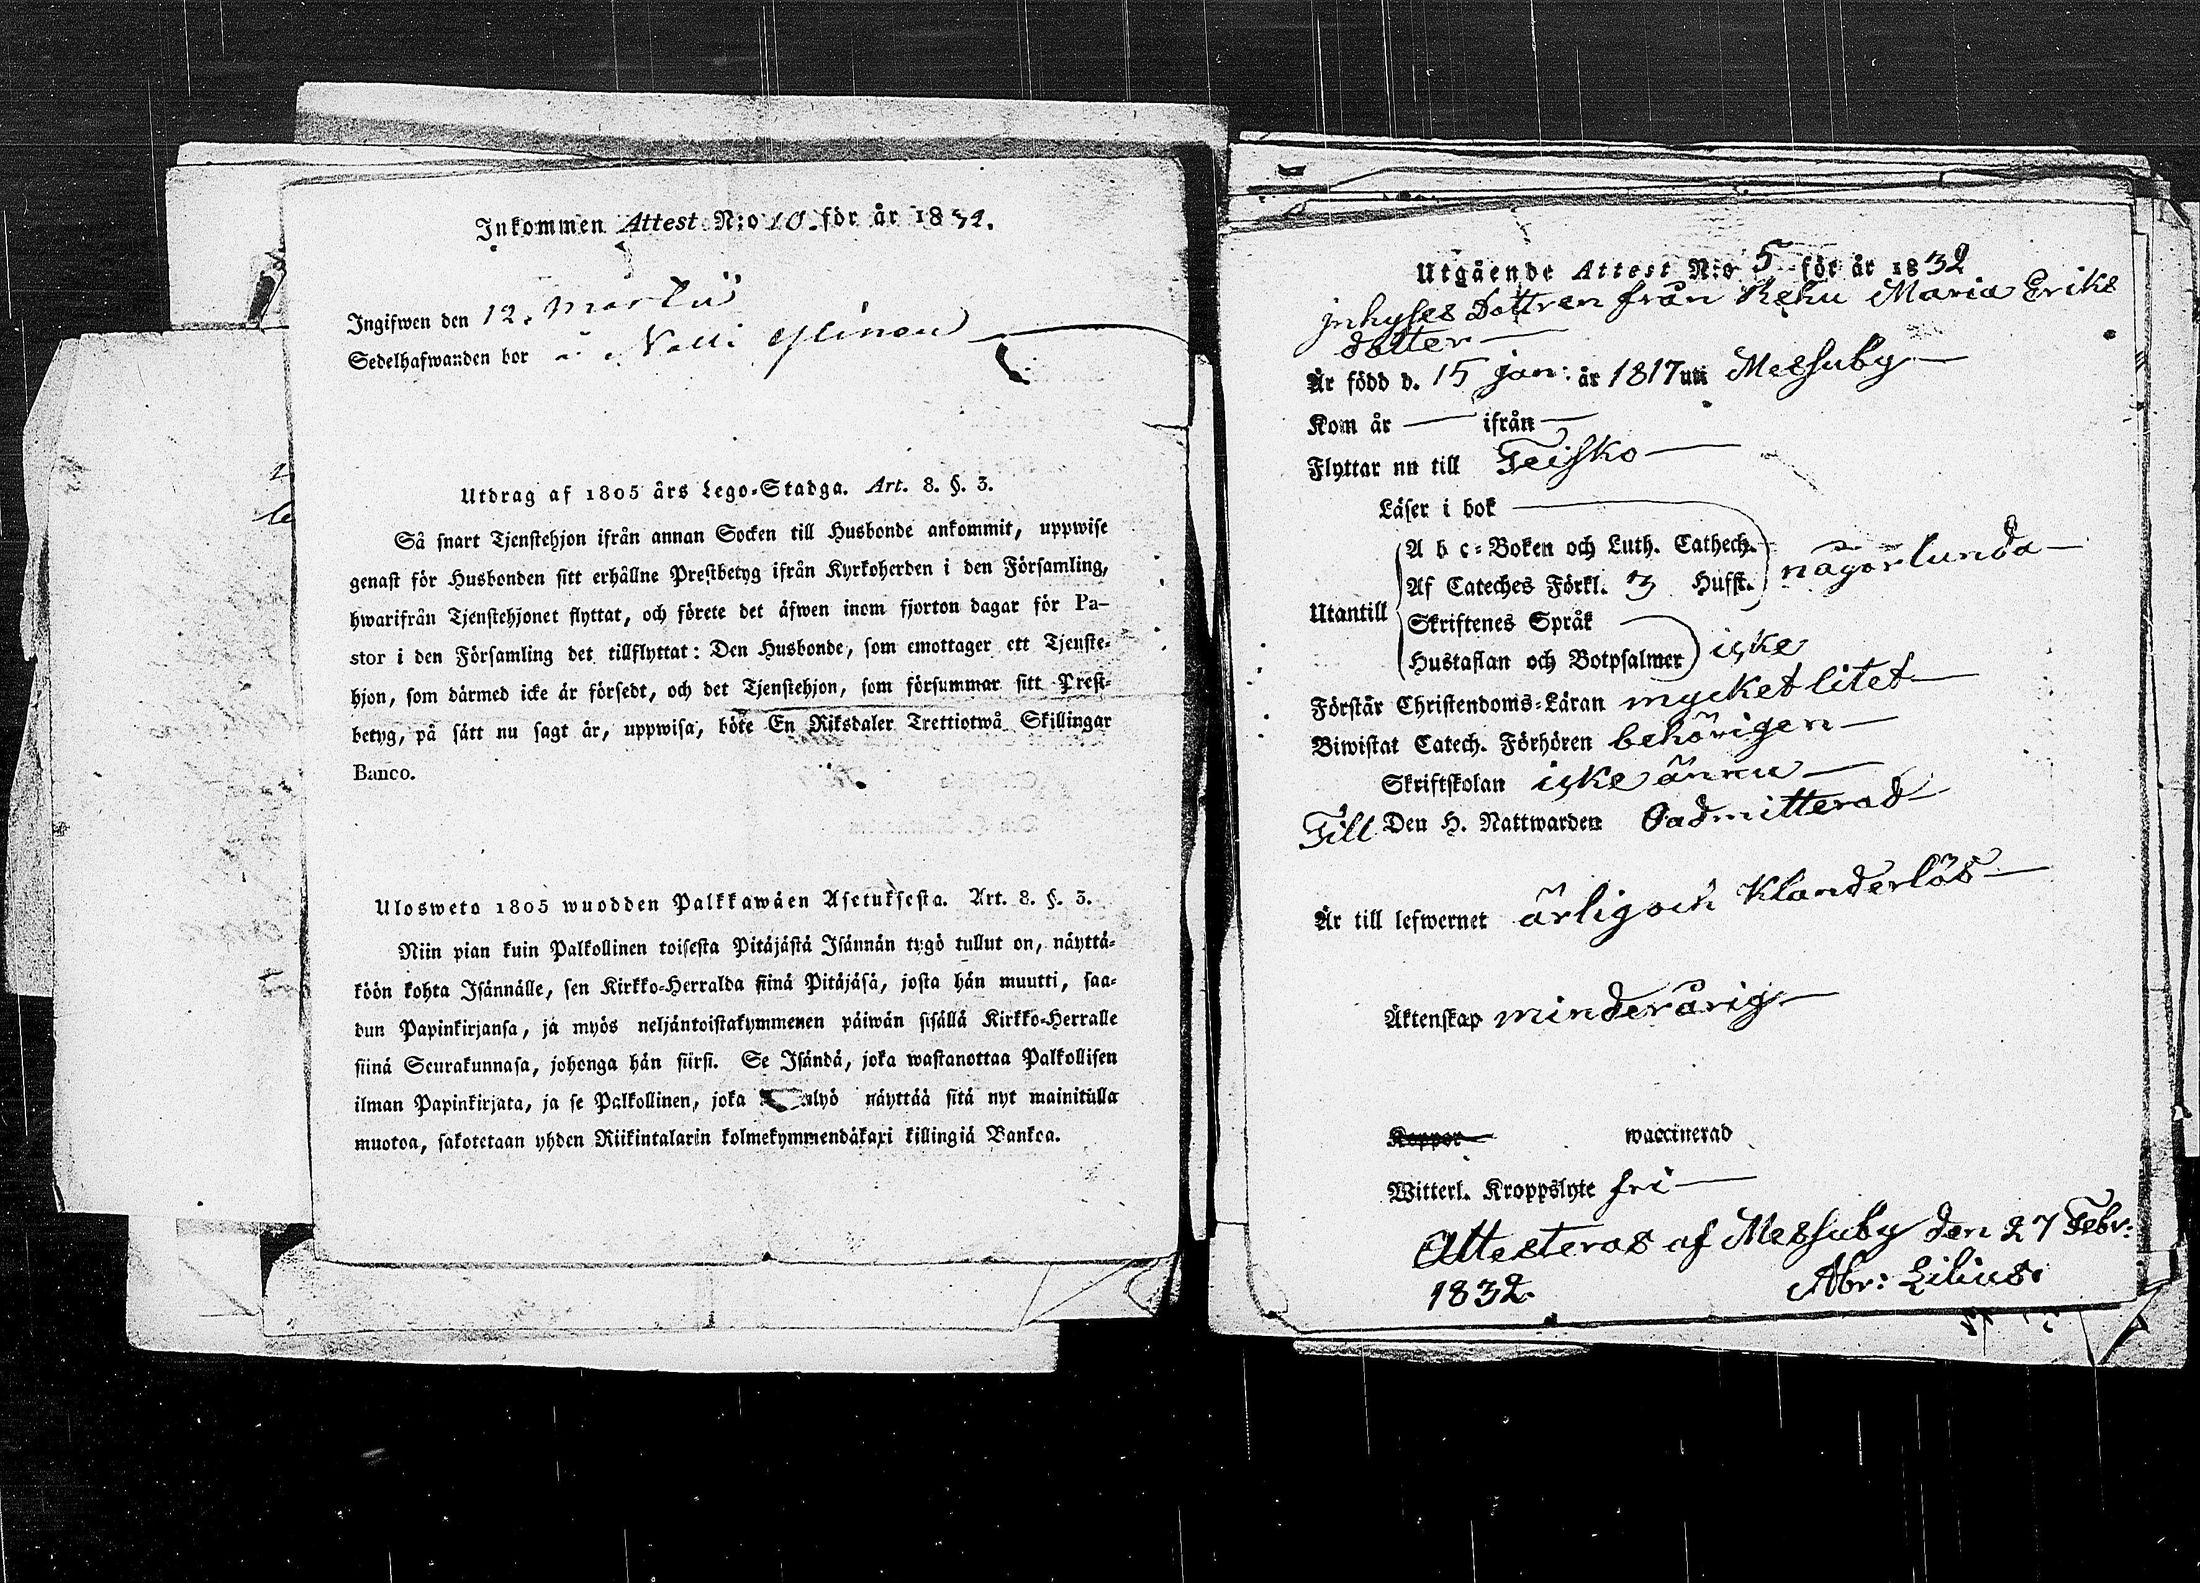 Inkommen Attest N:o 10. för år 1832.
Ingifwen den 12. Martii
Sedelhafwanden bor i
Utdrag af 1805 års Lego-Stadga. Art. 8. §. 3.
Så snart Tjenstehjon ifrån annan Socken till Husbonde ankommit, uppwise
genast för Husbonden sitt erhållne Prestbetyg ifrån Kyrkoherden i den Församling,
hwarifrån Tjenstehjonet flyttat, och förete det äfwen inom fjorton dagar för Pa-
stor i den Församling det tillflyttat: Den Husbonde, som emottager ett Tjenste-
hjon, som därmed icke är försedt, och det Tjenstehjon, som försummar sitt Prest-
betyg, på sätt nu sagt är, uppwisa, böte En Riksdaler Trettiotwå Skillingar
Banco.
Ulosweto 1805 wuodden Palkkawäen Asetuksesta. Art. 8. §. 3.
Niin pian kuin Palkollinen toisesta Pitäjästä Isännän tygö tullut on, näyttä-
köön kohta Isännälle, sen Kirkko-Herralda siinä Pitäjäsä, josta hän muutti, saa-
dun Papinkirjansa, ja myös neljäntoistakymmenen päiwän sisällä Kirkko-Herralle
siinä Seurakunnasa, johonga hän siirsi. Se Isändä, joka wastanottaa Palkollisen
ilman Papinkirjata, ja se Palkollinen, joka näyttää sitä nyt mainitulla
muotoa, sakotetaan yhden Riikintalarin kolmekymmendäkaxi killingiä Bankoa.
Utgående Attest N:o 5 för år 1832
jnhyses Dottren från Rehu Maria Eriks
dotter
Är född d. 15 jan: år 1817 uti Messuby
Kom år — ifrån —
Flyttar nu till Teisko
Läser i bok
A b c-Boken och Luth. Cathech. någorlunda
Af Cateches Förkl. 3 Hufst.
Utantill
Skriftenes Språk
Hustaflan och Botpsalmer icke
Förstår Christendoms-Läran mycket litet
Biwistat Catech. Förhören behörigen
Skriftskolan icke ännu
Till Den H. Nattwarden Oadmitterad
Är till lefwernet ärlig och Klanderlös
Äktenskap minderårig
Koppor waccinerad
Witterl. Kroppslyte fri
Attesteras af Messuby den 27 Febr:
1832. Abr: Lilius.